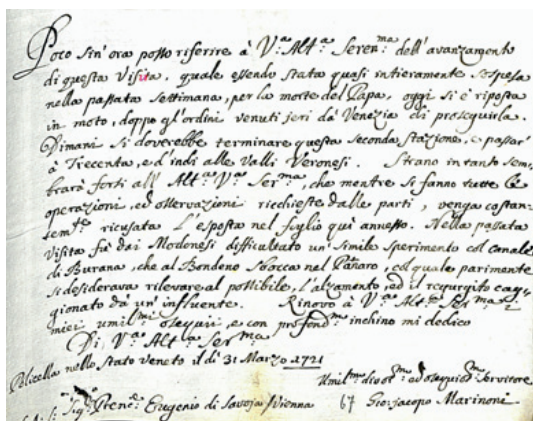 Poco sin' ora posso riferire à V.ª Alt.ª Seren.ma dell' avanzamento
di questa Visita, quale essendo stata quasi intieramente sospesa
nella passata Settimana, per la morte del Papa, oggi si è riposta
in moto, doppo gl'ordini venuti jeri da Venezia di proseguirla.
Dimani si doverebbe terminare questa seconda stazione, e passar'
à Trecenta, ed' indi alle Valli Veronesi. Strano in tanto sem,
brarà forsi all' Alt.ª V.ª Ser.ma, che mentre si fanno tutte le
operazioni, ed osservazioni ricchieste dalle parti, venga costan,
sem.te ricusata l'esposta nel foglio qui annesso. Nella passata
Visita fù dai Modonesi difficultato un' simile sperimento col canale
di Burana, che al Bondeno sbocca nel Panaro, col quale parimente
si desiderava rilevare al possibile, l'alzamento, ed il regurgito cag,
gionato da un' influente. Rinovo à V.ª Alt.ª Ser.ma i
miei umil.mi ossequii, e con profond.mo inchino mi dedico
Di V.ª Alt.ª Ser.ma
Polesella nello Stato Veneto il dì 31 Marzo 1721
Umil.mo divot.mo ed ossequios.mo servitore
Sig.r Prenc.e Eugenio di Savoja / Vienna 67 Gio: Jacopo Marinoni